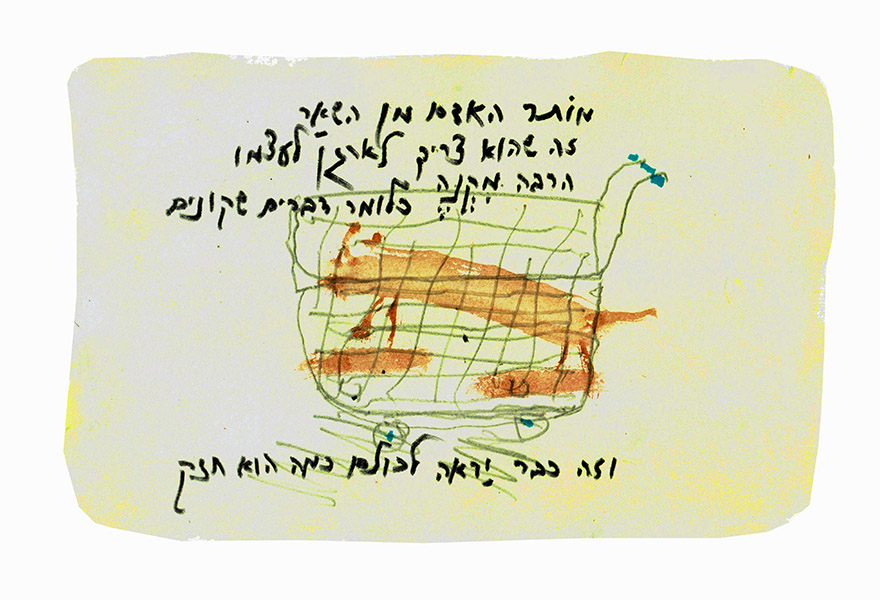 מוֹתר האדם מן השאר
זה שהוא צריך לארגן לעצמו
הרבה מִקְנֶה כלומר דברים שקונים
וזה כבר יַראה לכולם כמה הוא חזק